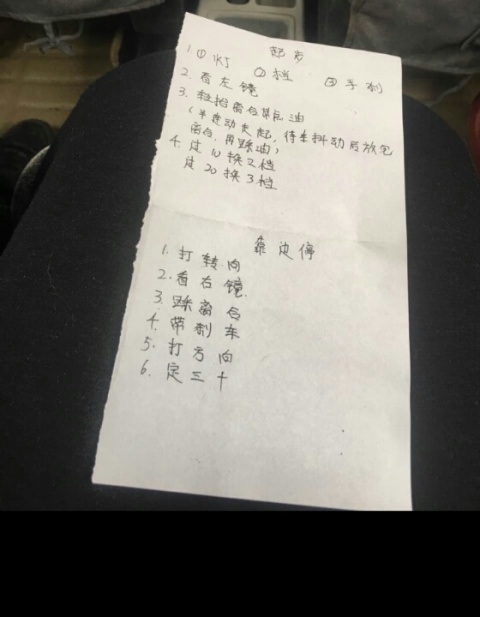 起步
1. ① 灯 ② 档 ③ 手刹
2. 看左镜
3. 轻抬离合 油
(半连动走起，停车抖动后放完
离合，再踩油)
4. 过 10 换 2 档
过 20 换 3 档
靠边停
1. 打转向
2. 看右镜.
3. 踩离合
4. 带刹车
5. 打方向
6. 定三十